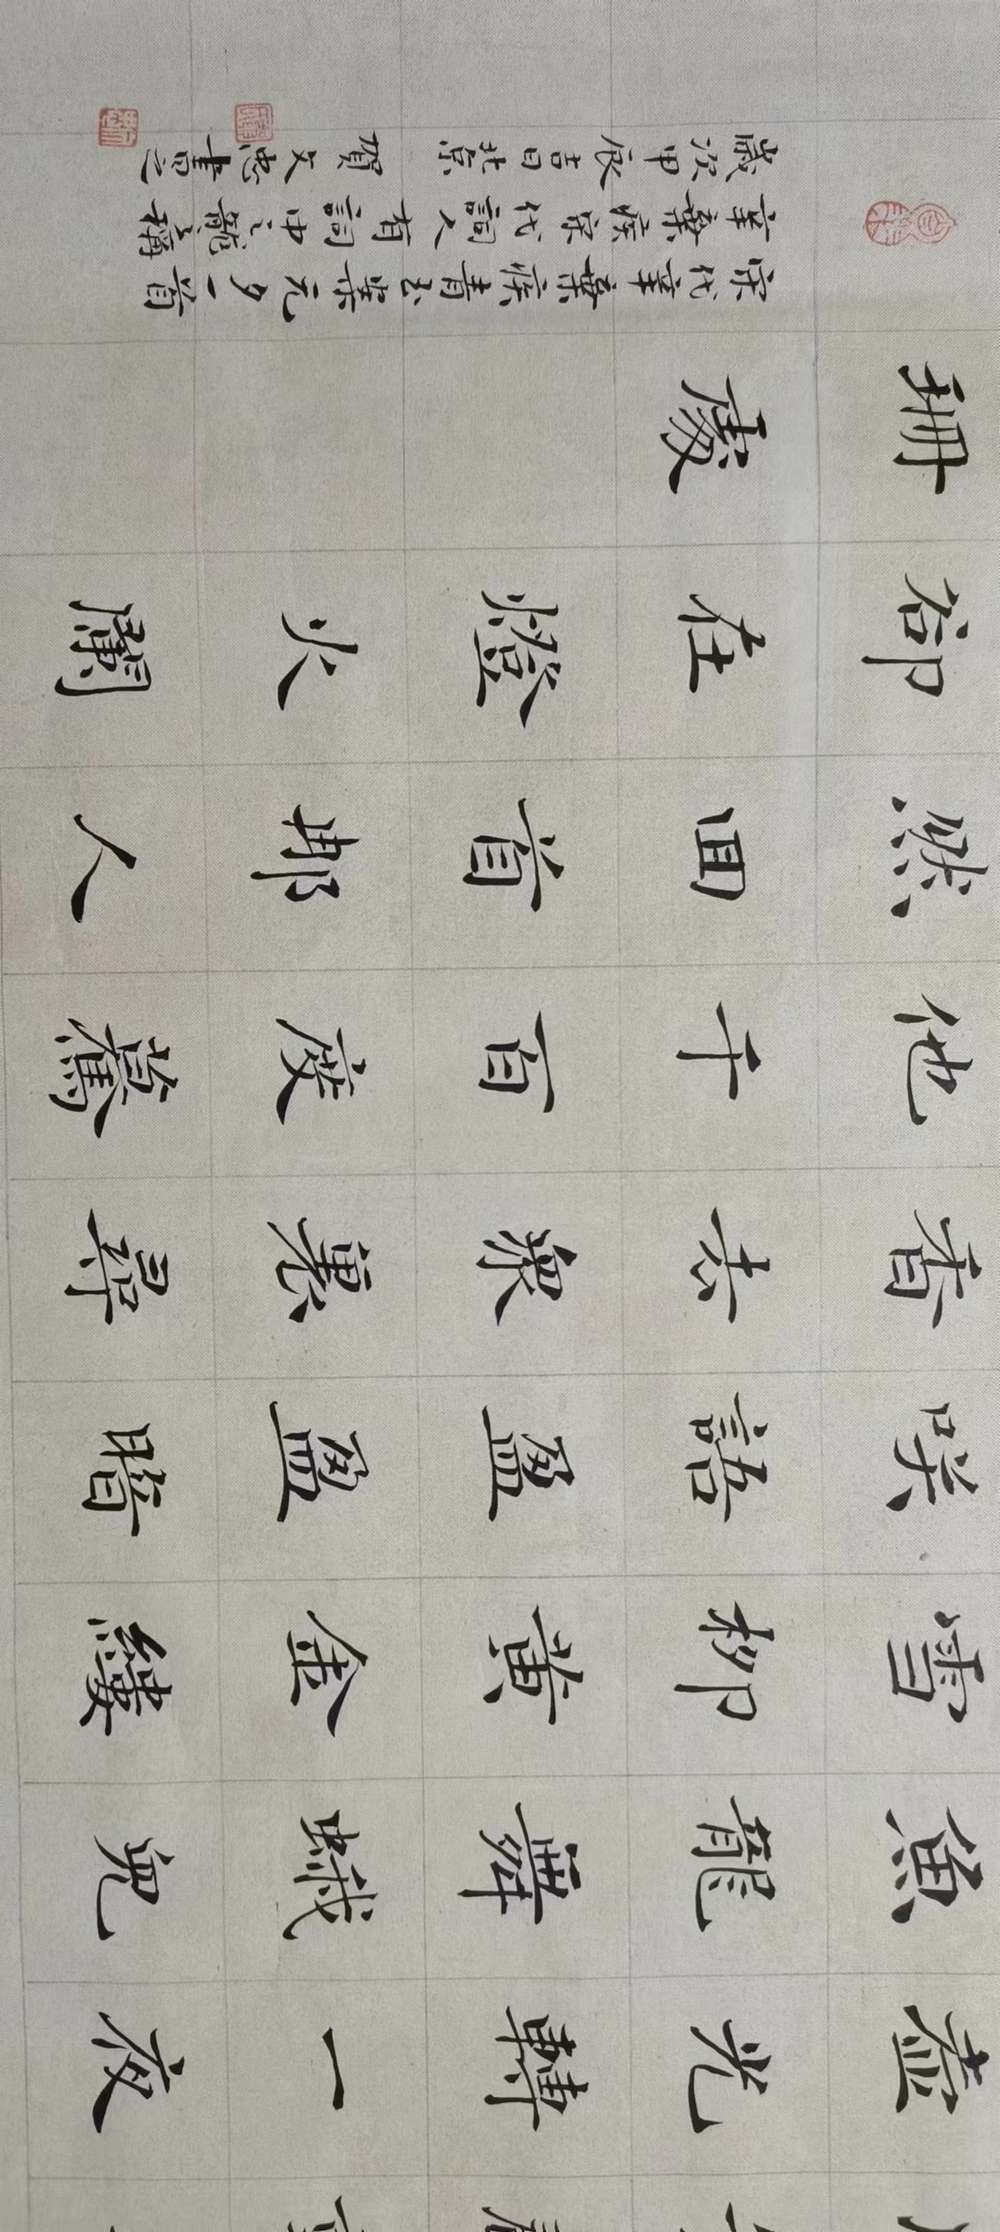 壺光轉一夜
魚龍舞蛾兒
雪柳黃金縷
笑語盈盈暗
香去衆裏尋
他千百度驀
然回首那人
卻在燈火闌
珊處
宋代辛棄疾青玉案元夕一首
辛棄疾宋代詞人有詞中之龍之稱
歲次甲辰吉日北京 賀文忠書之